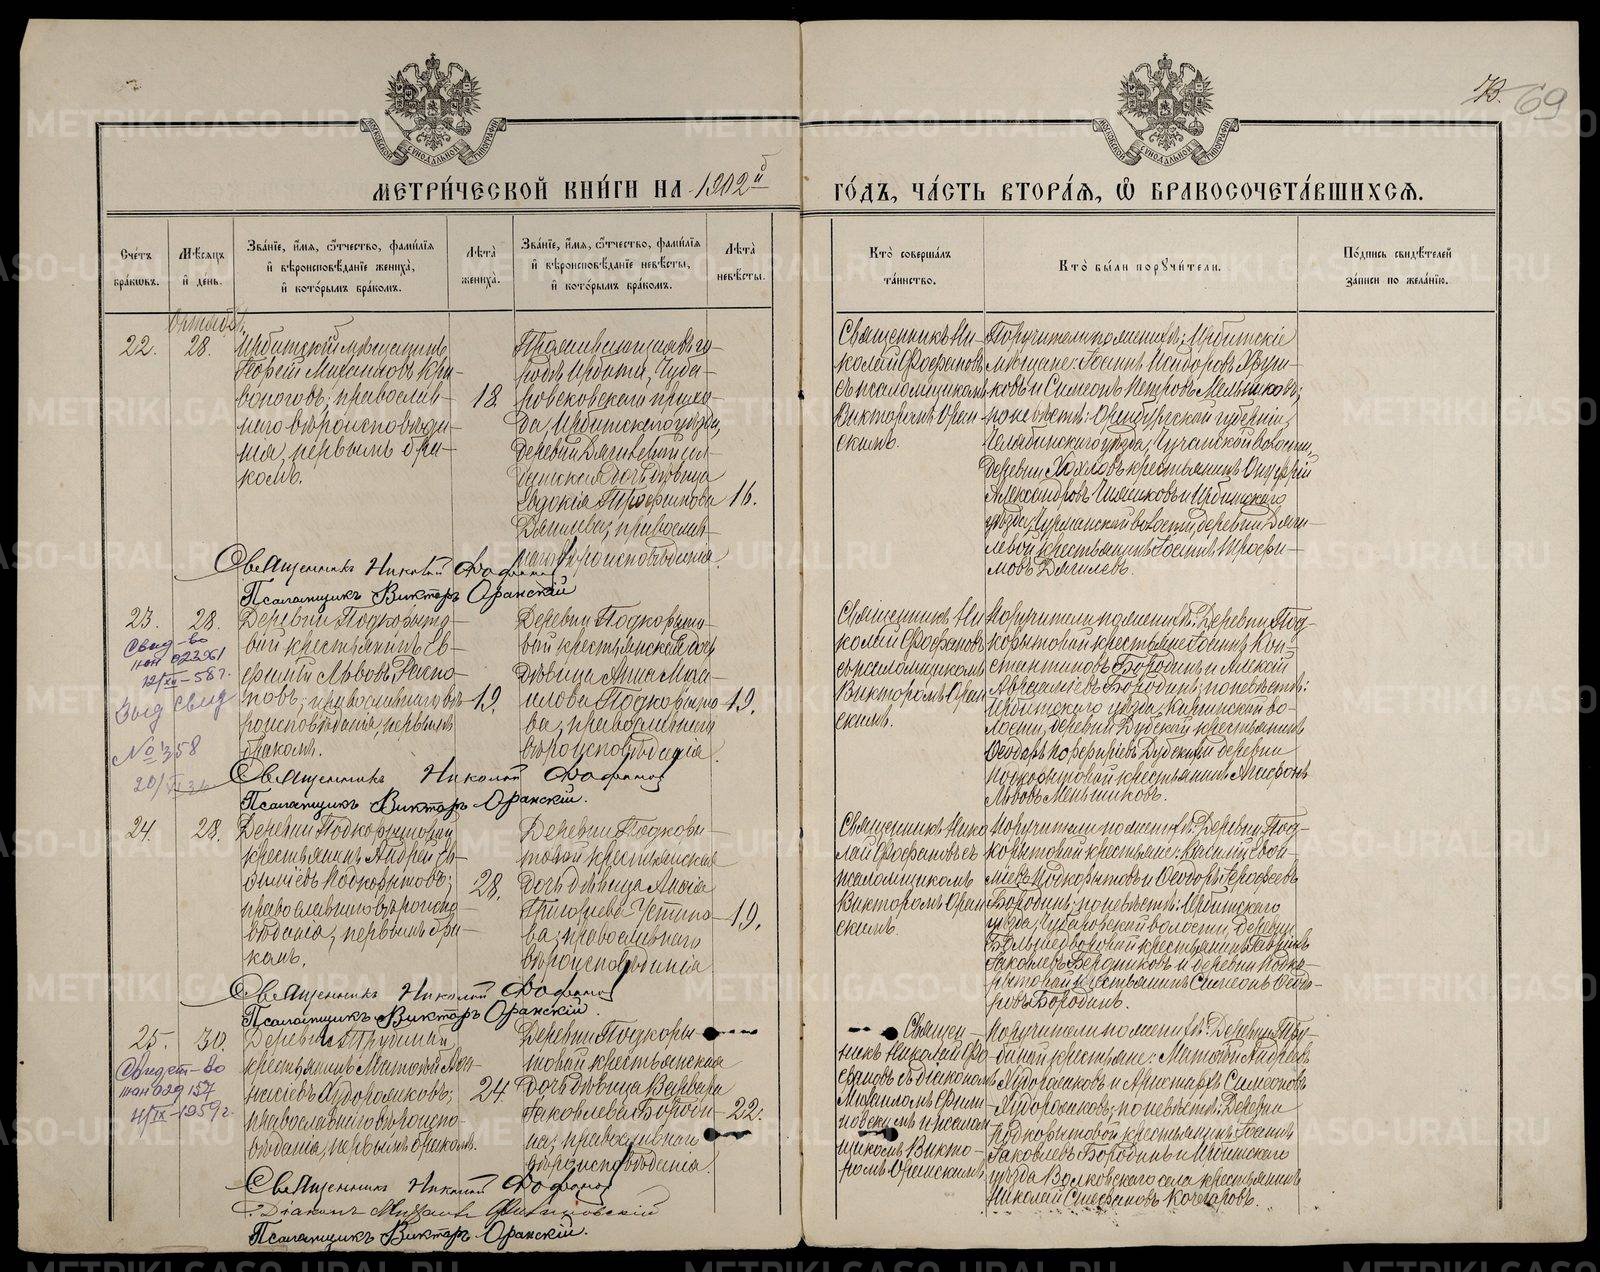 73. 69
МОСКОВСКОЙ СѴНОДАЛЬНОЙ ТИПОГРАФІИ
МОСКОВСКОЙ СѴНОДАЛЬНОЙ ТИПОГРАФІИ
МЕТРИ́ЧЕСКОЙ КНИ́ГИ НА 1902й
ГО́ДЪ, ЧА́СТЬ ВТОРА́Ѧ, Ѡ҆ БРАКОСОЧЕТА́ВШИХСѦ.
Сче́тъ бра́кѡвъ.
Мѣ́сѧцъ и҆ де́нь.
Зва́нїе, и҆́мѧ, ѻ҆́тчество, фами́лїѧ
и҆ вѣроисповѣ́данїе жениха̀,
и҆ кото́рымъ бра́комъ.
Лѣ́та жениха̀.
Зва́нїе, и҆́мѧ, ѻ҆́тчество, фами́лїѧ
и҆ вѣроисповѣ́данїе невѣ́сты,
и҆ кото́рымъ бра́комъ.
Лѣ́та невѣ́сты.
Кто̀ соверша́лъ
та́инство.
Кто̀ бы́ли порꙋчи́тели.
По́дпись свидѣ́телей
за́писи по жела́нїю.
Октябрь.
22.
28.
Ирбитскій мѣщанинъ
Георгій Михаиловъ Кри-
воноговъ; православ-
наго вѣроисповѣда-
нія, первымъ бра-
комъ.
18.
Проживающая въ го-
родѣ Ирбити, Чуба-
ровскаго прихо-
да, Ирбитскаго уѣзда,
деревни Дягилевой
дочь дѣвица
Евдокія Трофимова
Дягилева; православ-
наго вѣроисповѣданія.
16.
Священникъ Ни-
колай Феофановъ
съ псаломщикомъ
Викторомъ Оран-
скимъ.
Поручители по женихѣ: Ирбитскіе
мѣщане: Іоаннъ Исидоровъ
и Симеонъ Петровъ Мельниковъ;
по невѣстѣ: Оренбургской губерніи,
Челябинскаго уѣзда, волости,
деревни Хохловъ крестьянинъ Онуфрій
Александровъ и Ирбитскаго
уѣзда, волости, деревни Дяги-
левой крестьянинъ Іоаннъ Трофи-
мовъ Дягилевъ.
Священникъ Николай Феофановъ
Псаломщикъ Викторъ Оранскій
23.
28.
Свид-во
12/XII-58г.
Выд свид
№ 358
Деревни Подкорыто-
вой крестьянинъ Ев-
фимій Львовъ
православнаго вѣ-
роисповѣданія, первымъ
бракомъ.
19.
Деревни Подкорыто-
вой крестьянская дочь
дѣвица Анна Миха-
илова Подкорыто-
ва; православнаго
вѣроисповѣданія.
19.
Священникъ Ни-
колай Феофановъ
съ псаломщикомъ
Викторомъ Оран-
скимъ.
Поручители по женихѣ: Деревни Под-
корытовой крестьяне: Іоаннъ Кон-
стантиновъ Бородинъ и Алексій
Бородинъ; по невѣстѣ:
Ирбитскаго уѣзда, во-
лости, деревни Дубской крестьянинъ
Ѳеодоръ Порфиріевъ Дубскій и деревни
Подкорытовой крестьянинъ Агафонъ
Львовъ Меньшиковъ.
Священникъ Николай Феофановъ
Псаломщикъ Викторъ Оранскій.
24.
28.
Деревни Подкорытовой
крестьянинъ Андрей
Подкорытовъ;
православнаго вѣроиспо-
вѣданія, первымъ бра-
комъ.
28.
Деревни Подкоры-
товой крестьянская
дочь дѣвица
Григорьева Устино-
ва; православнаго
вѣроисповѣданія
19.
Священникъ Нико-
лай Феофановъ съ
псаломщикомъ
Викторомъ Оран-
скимъ.
Поручители по женихѣ: Деревни Под-
корытовой крестьяне: Василій
Подкорытовъ и Ѳеодоръ
Бородинъ; по невѣстѣ: Ирбитскаго
уѣзда, Чубаровской волости, деревни
крестьянинъ Гавріилъ
Яковлевъ Бердниковъ и деревни Подко-
рытовой крестьянинъ Симеонъ Ѳеодо-
ровъ Бородинъ.
Священникъ Николай Феофановъ
Псаломщикъ Викторъ Оранскій.
25.
30.
Свидет-во
4/IX-1959г.
Деревни
крестьянинъ Матѳей
Худорожковъ;
православнаго вѣроиспо-
вѣданія, первымъ бракомъ.
24.
Деревни Подкоры-
товой крестьянская
дочь дѣвица Варвара
Яковлева Бороди-
на; православнаго
вѣроисповѣданія.
22.
Священ-
никъ Николай Фео-
фановъ съ діакономъ
Михаиломъ Филип-
повскимъ и псалом-
щикомъ Викто-
ромъ Оранскимъ.
Поручители по женихѣ: Деревни
крестьяне: Матѳей Андреевъ
Худорожковъ и Аристархъ Симеоновъ
Худорожковъ; по невѣстѣ: Деревни
Подкорытовой крестьянинъ Іоаннъ
Яковлевъ Бородинъ и Ирбитскаго
уѣзда Волковскаго села крестьянинъ
Николай Стефановъ Кочегаровъ.
Священникъ Николай Феофановъ
Діаконъ Михаилъ Филипповскій
Псаломщикъ Викторъ Оранскій.
METRIKI.GASO-URAL.RU